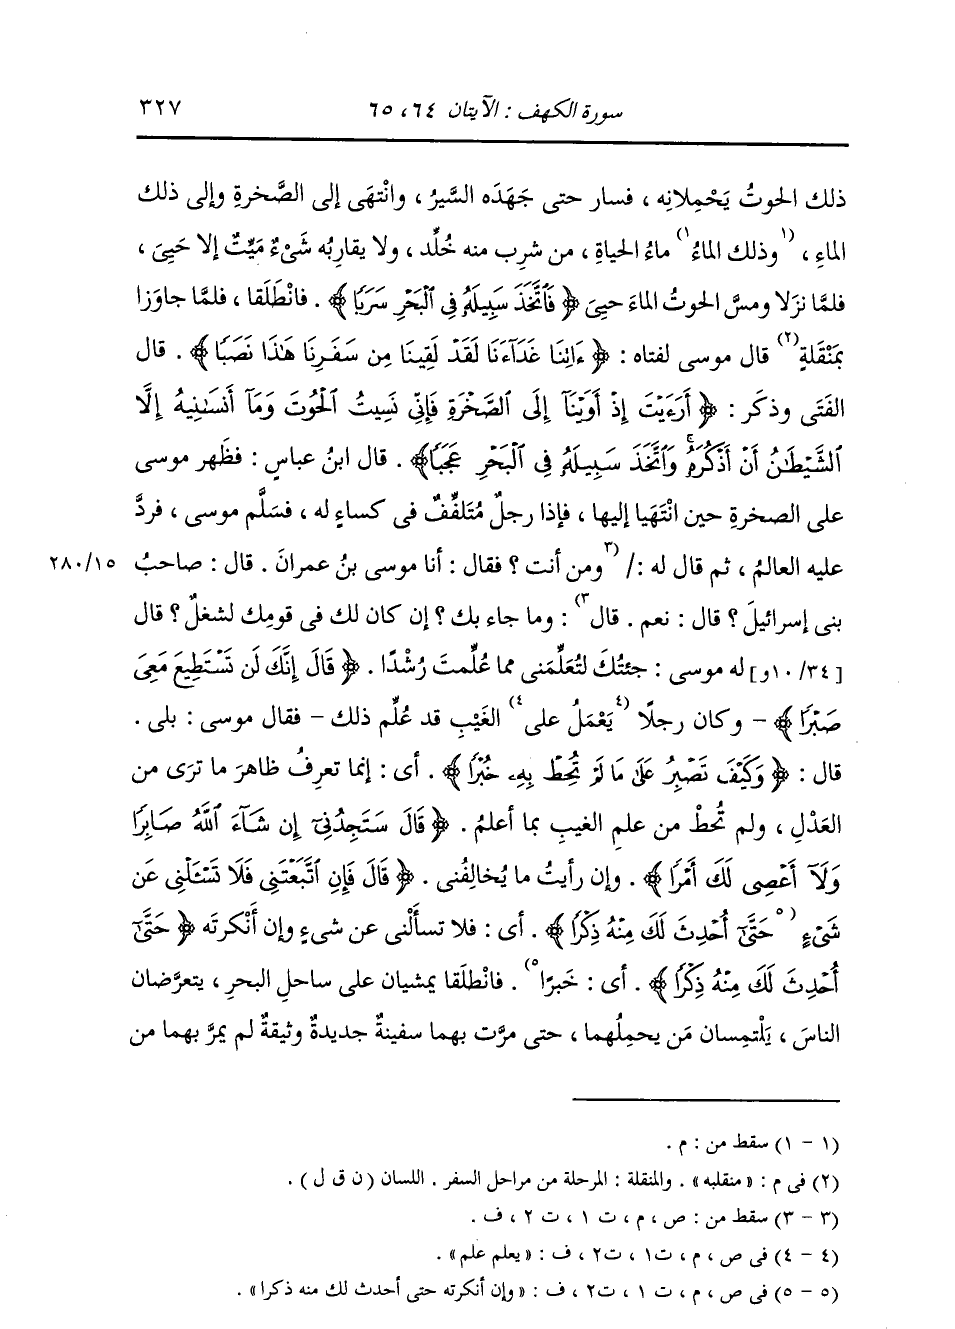 سورة الكهف : الآيتان ٦٤ ، ٦٥
٣٢٧
ذلك الحوتُ يَحْمِلانِه ، فسار حتى جَهَدَه السَّيرُ ، وانْتهَى إلى الصَّخرةِ وإلى ذلك
الماءِ ، (١وذلك الماءُ١) ماءُ الحياةِ ، من شرِب منه خُلِّد ، ولا يقارِبُه شَىْءٌ مَيِّتٌ إلا حَيِىَ ،
فلمَّا نزَلا ومسَّ الحوتُ الماءَ حيِىَ ﴿ فَٱتَّخَذَ سَبِيلَهُۥ فِى ٱلْبَحْرِ سَرَبًا ﴾ . فانْطَلَقا ، فلمَّا جاوَزا
بمَنْقَلةٍ(٢) قال موسى لفتاه : ﴿ ءَاتِنَا غَدَآءَنَا لَقَدْ لَقِينَا مِن سَفَرِنَا هَٰذَا نَصَبًا ﴾ . قال
الفَتَى وذكَر : ﴿ أَرَءَيْتَ إِذْ أَوَيْنَآ إِلَى ٱلصَّخْرَةِ فَإِنِّى نَسِيتُ ٱلْحُوتَ وَمَآ أَنسَىٰنِيهُ إِلَّا
ٱلشَّيْطَٰنُ أَنْ أَذْكُرَهُۥۚ وَٱتَّخَذَ سَبِيلَهُۥ فِى ٱلْبَحْرِ عَجَبًا﴾ . قال ابنُ عباسٍ : فظَهر موسى
على الصخرةِ حين انْتَهَيا إليها ، فإذا رجلٌ مُتَلفِّفٌ فى كساءٍ له ، فسَلَّم موسى ، فردَّ
عليه العالمُ ، ثم قال له :/ (٣ومن أنت ؟ فقال : أنا موسى بنُ عمرانَ . قال : صاحبُ ٢٨٠/١٥
بنى إسرائيلَ ؟ قال : نعم . قال٣) : وما جاء بك ؟ إن كان لك فى قومِك لشغلٌ ؟ قال
[٣٤/ ١٠و] له موسى : جئتُكَ لتُعَلِّمَنى مما عُلِّمتَ رُشْدًا . ﴿ قَالَ إِنَّكَ لَن تَسْتَطِيعَ مَعِىَ
صَبْرًا ﴾ – وكان رجلًا (٤يَعْمَلُ على٤) الغَيْبِ قد عُلِّم ذلك – فقال موسى : بلى .
قال : ﴿ وَكَيْفَ تَصْبِرُ عَلَىٰ مَا لَمْ تُحِطْ بِهِۦ خُبْرًا ﴾ . أى : إنما تعرِفُ ظاهرَ ما ترَى من
العَدْلِ ، ولم تُحطْ من علمِ الغيبِ بما أعلمُ . ﴿ قَالَ سَتَجِدُنِىٓ إِن شَآءَ ٱللَّهُ صَابِرًا
وَلَآ أَعْصِى لَكَ أَمْرًا ﴾ . وإن رأيتُ ما يُخالفُنى . ﴿ قَالَ فَإِنِ ٱتَّبَعْتَنِى فَلَا تَسْـَٔلْنِى عَن
شَىْءٍ (٥حَتَّىٰٓ أُحْدِثَ لَكَ مِنْهُ ذِكْرًا ﴾ . أى : فلا تسألْنى عن شىءٍ وإن أَنْكرتَه ﴿ حَتَّىٰٓ
أُحْدِثَ لَكَ مِنْهُ ذِكْرًا ﴾ . أى : خَبرًا٥) . فانْطلَقا يمشيان على ساحلِ البحرِ ، يتعرَّضان
الناسَ ، يَلْتمِسان مَن يحمِلُهما ، حتى مرَّت بهما سفينةٌ جديدةٌ وثيقةٌ لم يمرَّ بهما من
(١ - ١) سقط من : م .
(٢) فى م : «منقلبه» . والمنقلة : المرحلة من مراحل السفر . اللسان (ن ق ل) .
(٣ - ٣) سقط من : ص ، م ، ت ١ ، ت ٢ ، ف .
(٤ - ٤) فى ص ، م ، ت١ ، ت٢ ، ف : «يعلم علم» .
(٥ - ٥) فى ص ، م ، ت ١ ، ت٢ ، ف : «وإن أنكرته حتى أحدث لك منه ذكرا» .